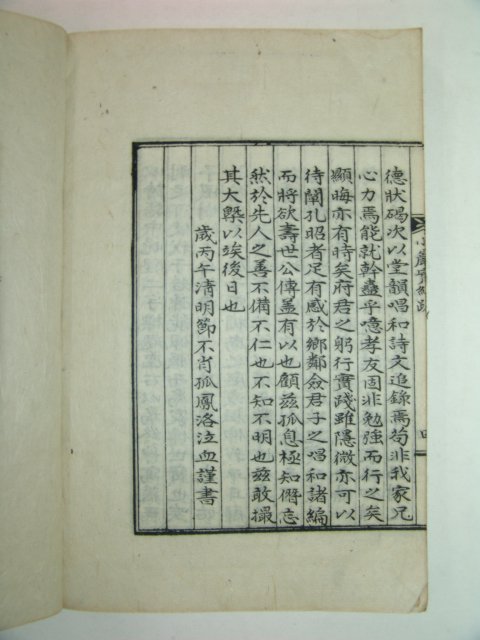 德狀碣次以堂韻唱和詩文追錄焉苟非我家兄
心力焉能就幹蠱乎噫孝友固非勉強而行之矣
顯晦亦有時矣府君之躬行實踐雖隱微亦可以
待闡孔昭者足有感於鄉鄰僉君子之唱和諸編
而將欲壽世公傳盖有以也顧玆孤息極知僭忘
然於先人之善不備不仁也不知不明也玆敢撮
其大槩以竢後日也
歲丙午清明節不肖孤鳳洛泣血謹書